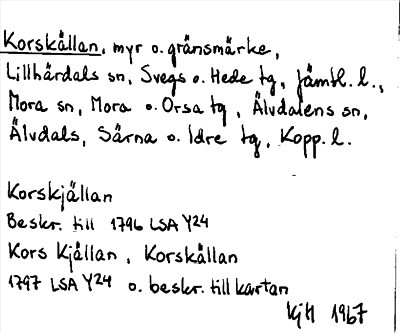 Korskällan, myr o. gränsmärke,
Lillhärdals sn, Svegs o. Hede tg, Jämtl. l.,
Mora sn, Mora o. Orsa tg, Älvdalens sn,
Älvdals, Särna o. Idre tg, Kopp. l.
Korskjällan
Beskr. till 1796 LSA Y24
Kors Kjällan, Korskällan
1797 LSA Y24 o. beskr. till kartan
KjH 1967